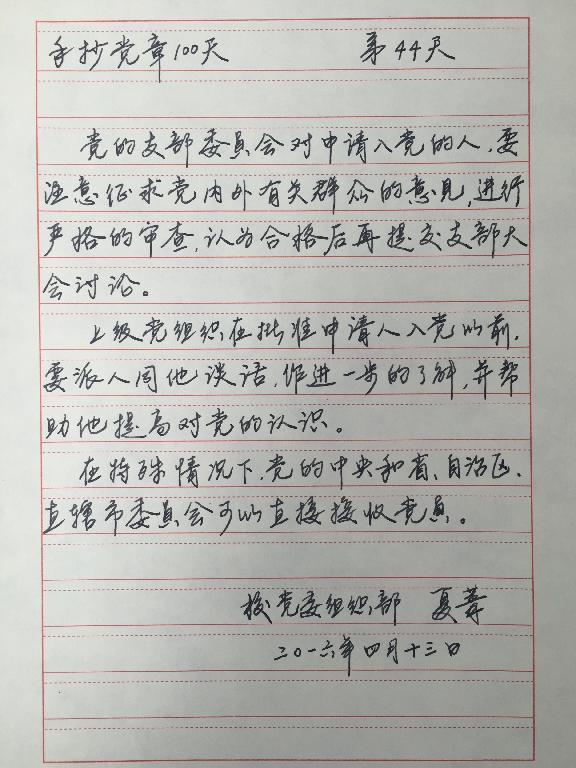 手抄党章100天 第44天
党的支部委员会对申请入党的人,要
注意征求党内外有关群众的意见,进行
严格的审查,认为合格后再提交支部大
会讨论。
上级党组织在批准申请人入党以前,
要派人同他谈话,作进一步的了解,并帮
助他提高对党的认识。
在特殊情况下,党的中央和省、自治区、
直辖市委员会可以直接接收党员。
校党委组织部 夏
二〇一六年四月十三日